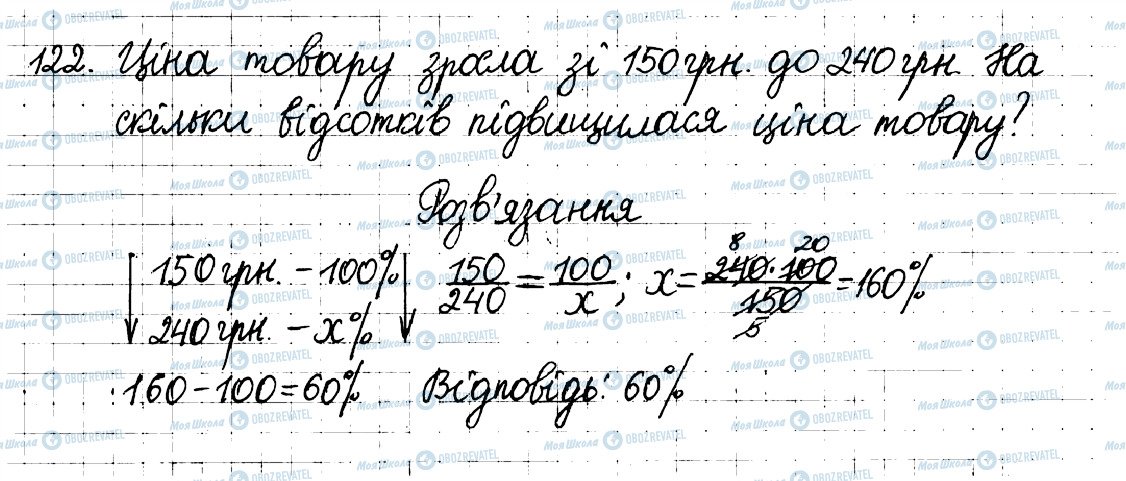 122. Ціна товару зросла зі 150 грн. до 240 грн. На
скільки відсотків підвищилася ціна товару?
Розв'язання
150 грн. – 100%
240 грн. – x%
150/240 = 100/x; x = 240·100/150 = 160%
8 20
5
160 – 100 = 60% Відповідь: 60%
МояШкола OBOZREVATEL